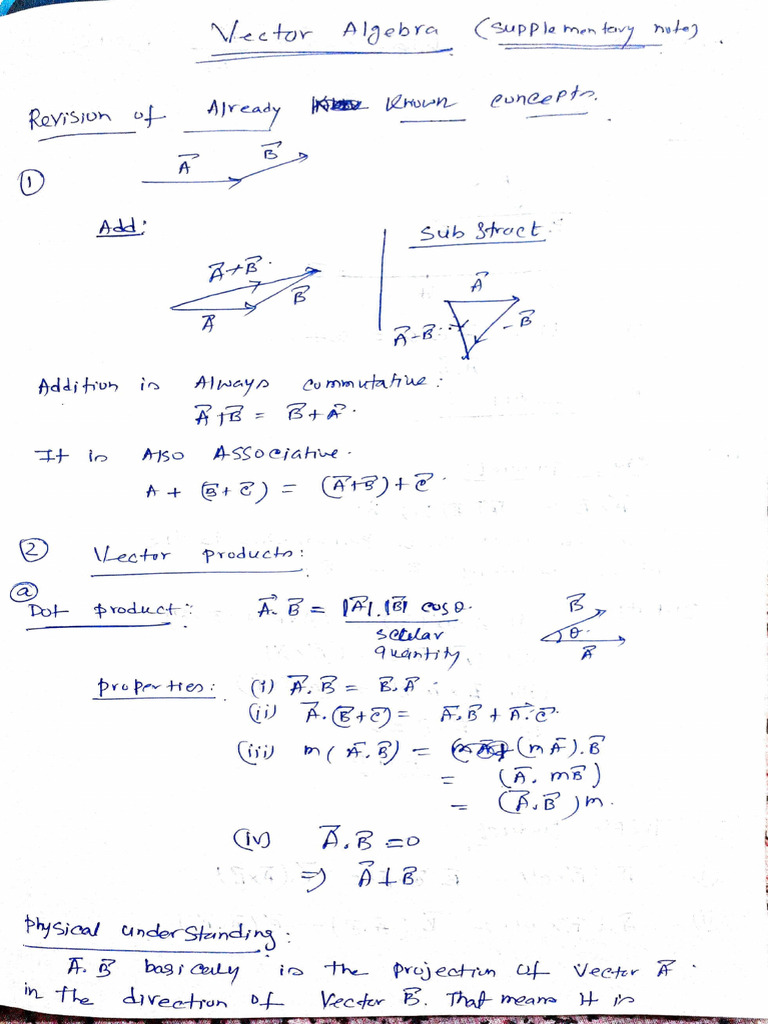 Vector Algebra (supplementary note)
Revision of Already Known concepts.
① A⃗ B⃗
Add: Substract:
A⃗+B⃗ B⃗ A⃗
A⃗ A⃗-B⃗ -B⃗
Addition is Always commutative:
A⃗+B⃗ = B⃗+A⃗.
It is Also Associative.
A + (B⃗+C⃗) = (A⃗+B⃗)+C⃗.
② Vector products:
ⓐ
Dot product: A⃗. B⃗ = |A⃗|.|B⃗| cosθ. B⃗
scalar θ.
quantity. A⃗
properties: (i) A⃗.B⃗ = B⃗.A⃗
(ii) A⃗.(B⃗+C⃗) = A⃗.B⃗ + A⃗.C⃗.
(iii) m(A⃗.B⃗) = (mA⃗).B⃗
= (A⃗. mB⃗)
= (A⃗.B⃗)m.
(iv) A⃗.B⃗ =0
⇒ A⃗⊥B⃗
physical understanding:
A⃗.B⃗ basically is the projection of vector A⃗
in the direction of vector B⃗. That means it is